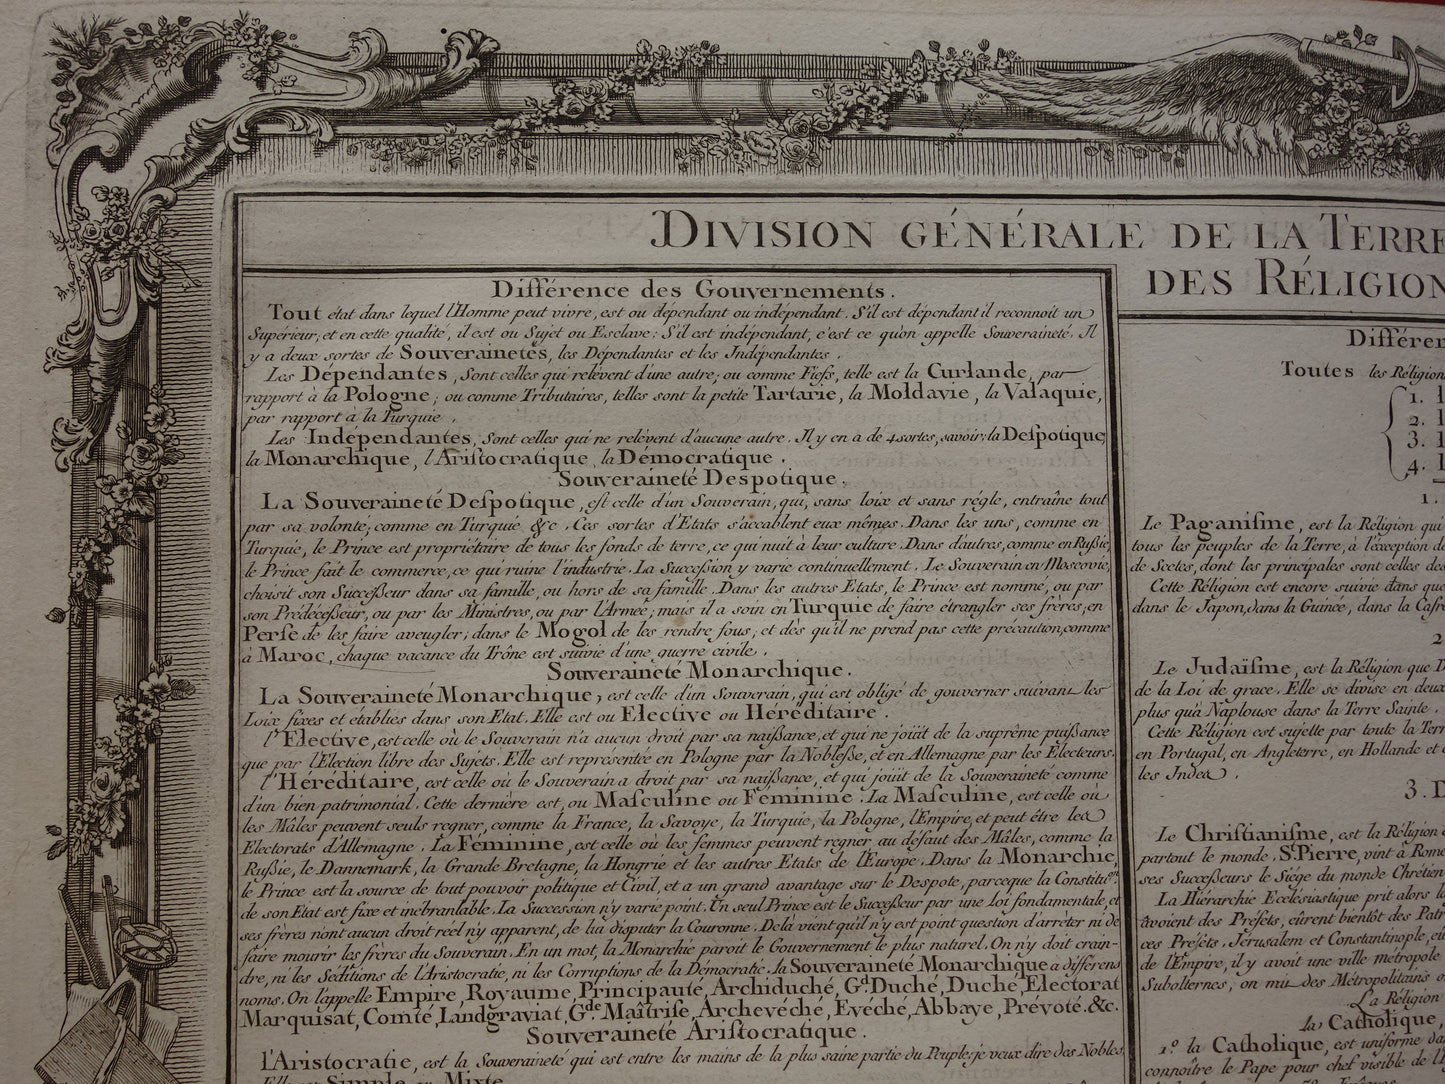 DIVISION GÉNÉRALE DE LA TERRE
DES RÉLIGION
Différence des Gouvernements.
Tout état dans lequel l'Homme peut vivre, est ou dépendant ou indépendant. S'il est dépendant il reconnoit un
Supérieur; et en cette qualité, il est ou Sujet ou Esclave: S'il est indépendant, c'est ce qu'on appelle Souveraineté. Il
y a deux sortes de Souverainetés, les Dépendantes et les Indépendantes.
Les Dépendantes, sont celles qui relèvent d'une autre; ou comme Fiefs, telle est la Curlande, par
rapport à la Pologne; ou comme Tributaires, telles sont la petite Tartarie, la Moldavie, la Valaquie,
par rapport à la Turquie.
Les Indépendantes, sont celles qui ne relèvent d'aucune autre. Il y en a de 4 sortes, savoir; la Despotique,
la Monarchique, l'Aristocratique, la Démocratique.
Souveraineté Despotique.
La Souveraineté Despotique, est celle d'un Souverain, qui, sans loix et sans régle, entraîne tout
par sa volonté; comme en Turquie &c. Ces sortes d'Etats s'accablent eux mêmes. Dans les uns, comme en
Turquie, le Prince est propriétaire de tous les fonds de terre, ce qui nuit à leur culture. Dans d'autres, comme en Rußie,
le Prince fait le commerce, ce qui ruine l'industrie. La Succeßion y varie continuellement. Le Souverain en Moscovie,
choisit son Succeßeur dans sa famille, ou hors de sa famille. Dans les autres Etats, le Prince est nommé, ou par
son Prédéceßeur, ou par les Ministres, ou par l'Armée; mais il a soin en Turquie de faire étrangler ses frères, en
Perse de les faire aveugler; dans le Mogol de les rendre fous, et dès qu'il ne prend pas cette précaution, comme
à Maroc, chaque vacance du Trône est suivie d'une guerre civile.
Souveraineté Monarchique.
La Souveraineté Monarchique, est celle d'un Souverain, qui est obligé de gouverner suivant les
Loix fixes et etablies dans son Etat. Elle est ou Elective ou Héréditaire.
l'Elective, est celle où le Souverain n'a aucun droit par sa naißance, et qui ne joüit de la suprême puißance
que par l'Election libre des Sujets. Elle est représentée en Pologne par la Nobleße, et en Allemagne par les Electeurs.
l'Héréditaire, est celle où le Souverain a droit par sa naißance, et qui joüit de la Souveraineté comme
d'un bien patrimonial. Cette dernière est, ou Masculine ou Féminine. La Masculine, est celle où
les Mâles peuvent seuls regner, comme la France, la Savoye, la Turquie, la Pologne, l'Empire, et peut être les
Electorats d'Allemagne. La Féminine, est celle où les femmes peuvent regner au défaut des Mâles, comme la
Rußie, le Dannemark, la Grande Bretagne, la Hongrie et les autres Etats de l'Europe. Dans la Monarchie,
le Prince est la source de tout pouvoir politique et Civil, et a un grand avantage sur le Despote, parceque la Constituon.
de son Etat est fixe et inébranlable. La Succession n'y varie point. Un seul Prince est le Succeßeur par une Loi fondamentale, et
ses frères n'ont aucun droit réel n'y apparent, de lui disputer la Couronne. Delà vient qu'il n'y est point question d'arrêter ni de
faire mourir les frères du Souverain. En un mot, la Monarchie paroit le Gouvernement le plus naturel. On n'y doit crain-
dre, ni les Séditions de l'Aristocratie, ni les Corruptions de la Démocratie. la Souveraineté Monarchique a différens
noms. On l'appelle Empire, Royaume, Principauté, Archiduché, Gd. Duché, Duché, Electorat
Marquisat, Comté, Landgraviat, Gde. Maîtrise, Archevéché, Evéché, Abbaye, Prévoté. &c.
Souveraineté Aristocratique.
l'Aristocratie, est la Souveraineté qui est entre les mains de la plus saine partie du Peuple; je veux dire des Nobles
Simple ou Mixte
Différen
Toutes les Réligion
1.
2.
3.
4.
1.
Le Paganisme, est la Réligion qui
tous les peuples de la Terre, à l'exception d
de Sectes, dont les principales sont celles des
Cette Réligion est encore suivie dans que
dans le Japon, dans la Guinée, dans la Cafr
2
Le Judaïsme, est la Réligion que D
de la Loi de grace. Elle se divise en deux
plus qu'à Naplouse dans la Terre Sainte.
Cette Réligion est sujette par toute la Terr
en Portugal, en Angleterre, en Hollande et
les Indes.
3. D
Le Christianisme, est la Réligion
partout le monde. St. Pierre, vint à Rome
ses Succeßeurs le Siége du monde Chrétien
La Hiérarchie Ecclésiastique prit alors l
avoient des Préfets, eûrent bientôt des Patr
ces Préfets. Jérusalem et Constantinople, eu
de l'Empire, il y avoit une ville metropole
Subalternes, on mit des Métropolitains o
La Réligion
la Catholique,
1.º la Catholique, est uniforme da
connoître le Pape pour chef visible de l'E